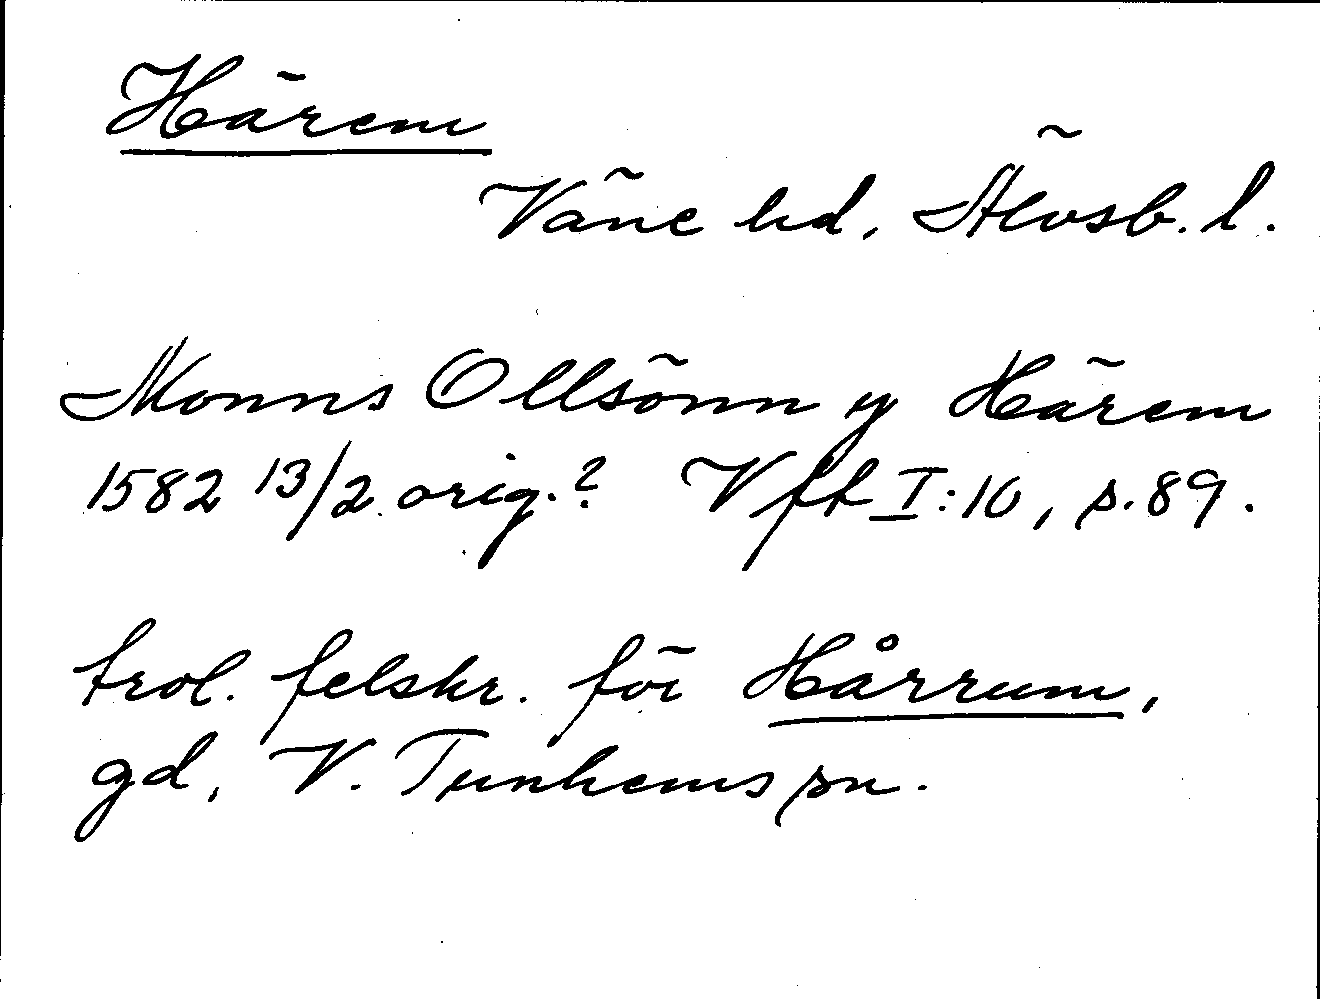 Härem
Väne hd, Älvsb. l.
Monns Ollsönn y Härem
1582 13/2 orig.? Vft I:10, s. 89.
trol. felskr. för Hårrum,
gd, V. Tunhems sn.